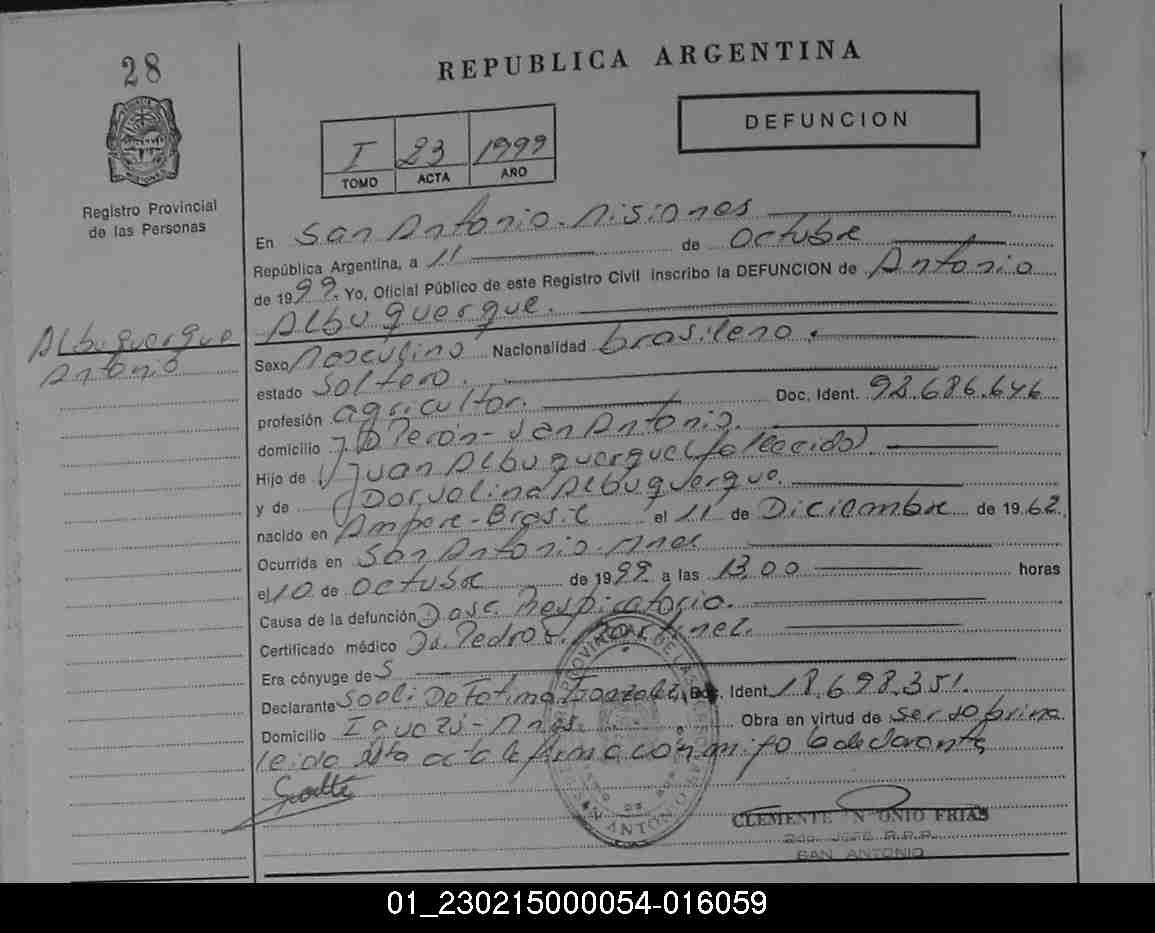 28
REPUBLICA ARGENTINA
DEFUNCION
I 23 1999
TOMO ACTA AÑO
Registro Provincial
de las Personas
En San Antonio. Misiones
República Argentina, a 11 de Octubre
de 1999. Yo, Oficial Público de este Registro Civil inscribo la DEFUNCION de Antonio
Albuquerque.
Albuquerque
Antonio
Sexo Masculino Nacionalidad brasileño.
estado Soltero.
profesión agricultor. Doc. Ident. 92.686.646
domicilio J.D Perón - San Antonio.
Hijo de Juan Albuquerque (fallecido)
y de Dorvalina Albuquerque.
nacido en Ampere - Brasil el 11 de Diciembre de 1962.
Ocurrida en San Antonio. Mnes
el 10 de Octubre de 1999 a las 13,00 horas
Causa de la defunción Respiratorio.
Certificado médico Dr. Pedro Martinez.
Era cónyuge de S
Declarante Soeli De Fatima Doc. Ident. 18.698.351.
Domicilio Iguazú - Mnes. Obra en virtud de ser sobrina
leida esta acta la firma conmigo la declarante
CLEMENTE ANTONIO FRIAS
2do. JEFE R.P.P.
SAN ANTONIO
01_230215000054-016059